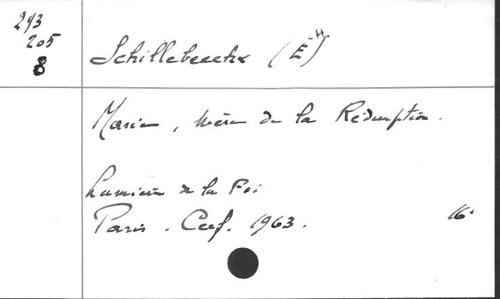 293
205
8
Schillebeeckx (E.H.)
Marie, mère de la Rédemption.
Lumière de la Foi
Paris. Cerf. 1963. 16°